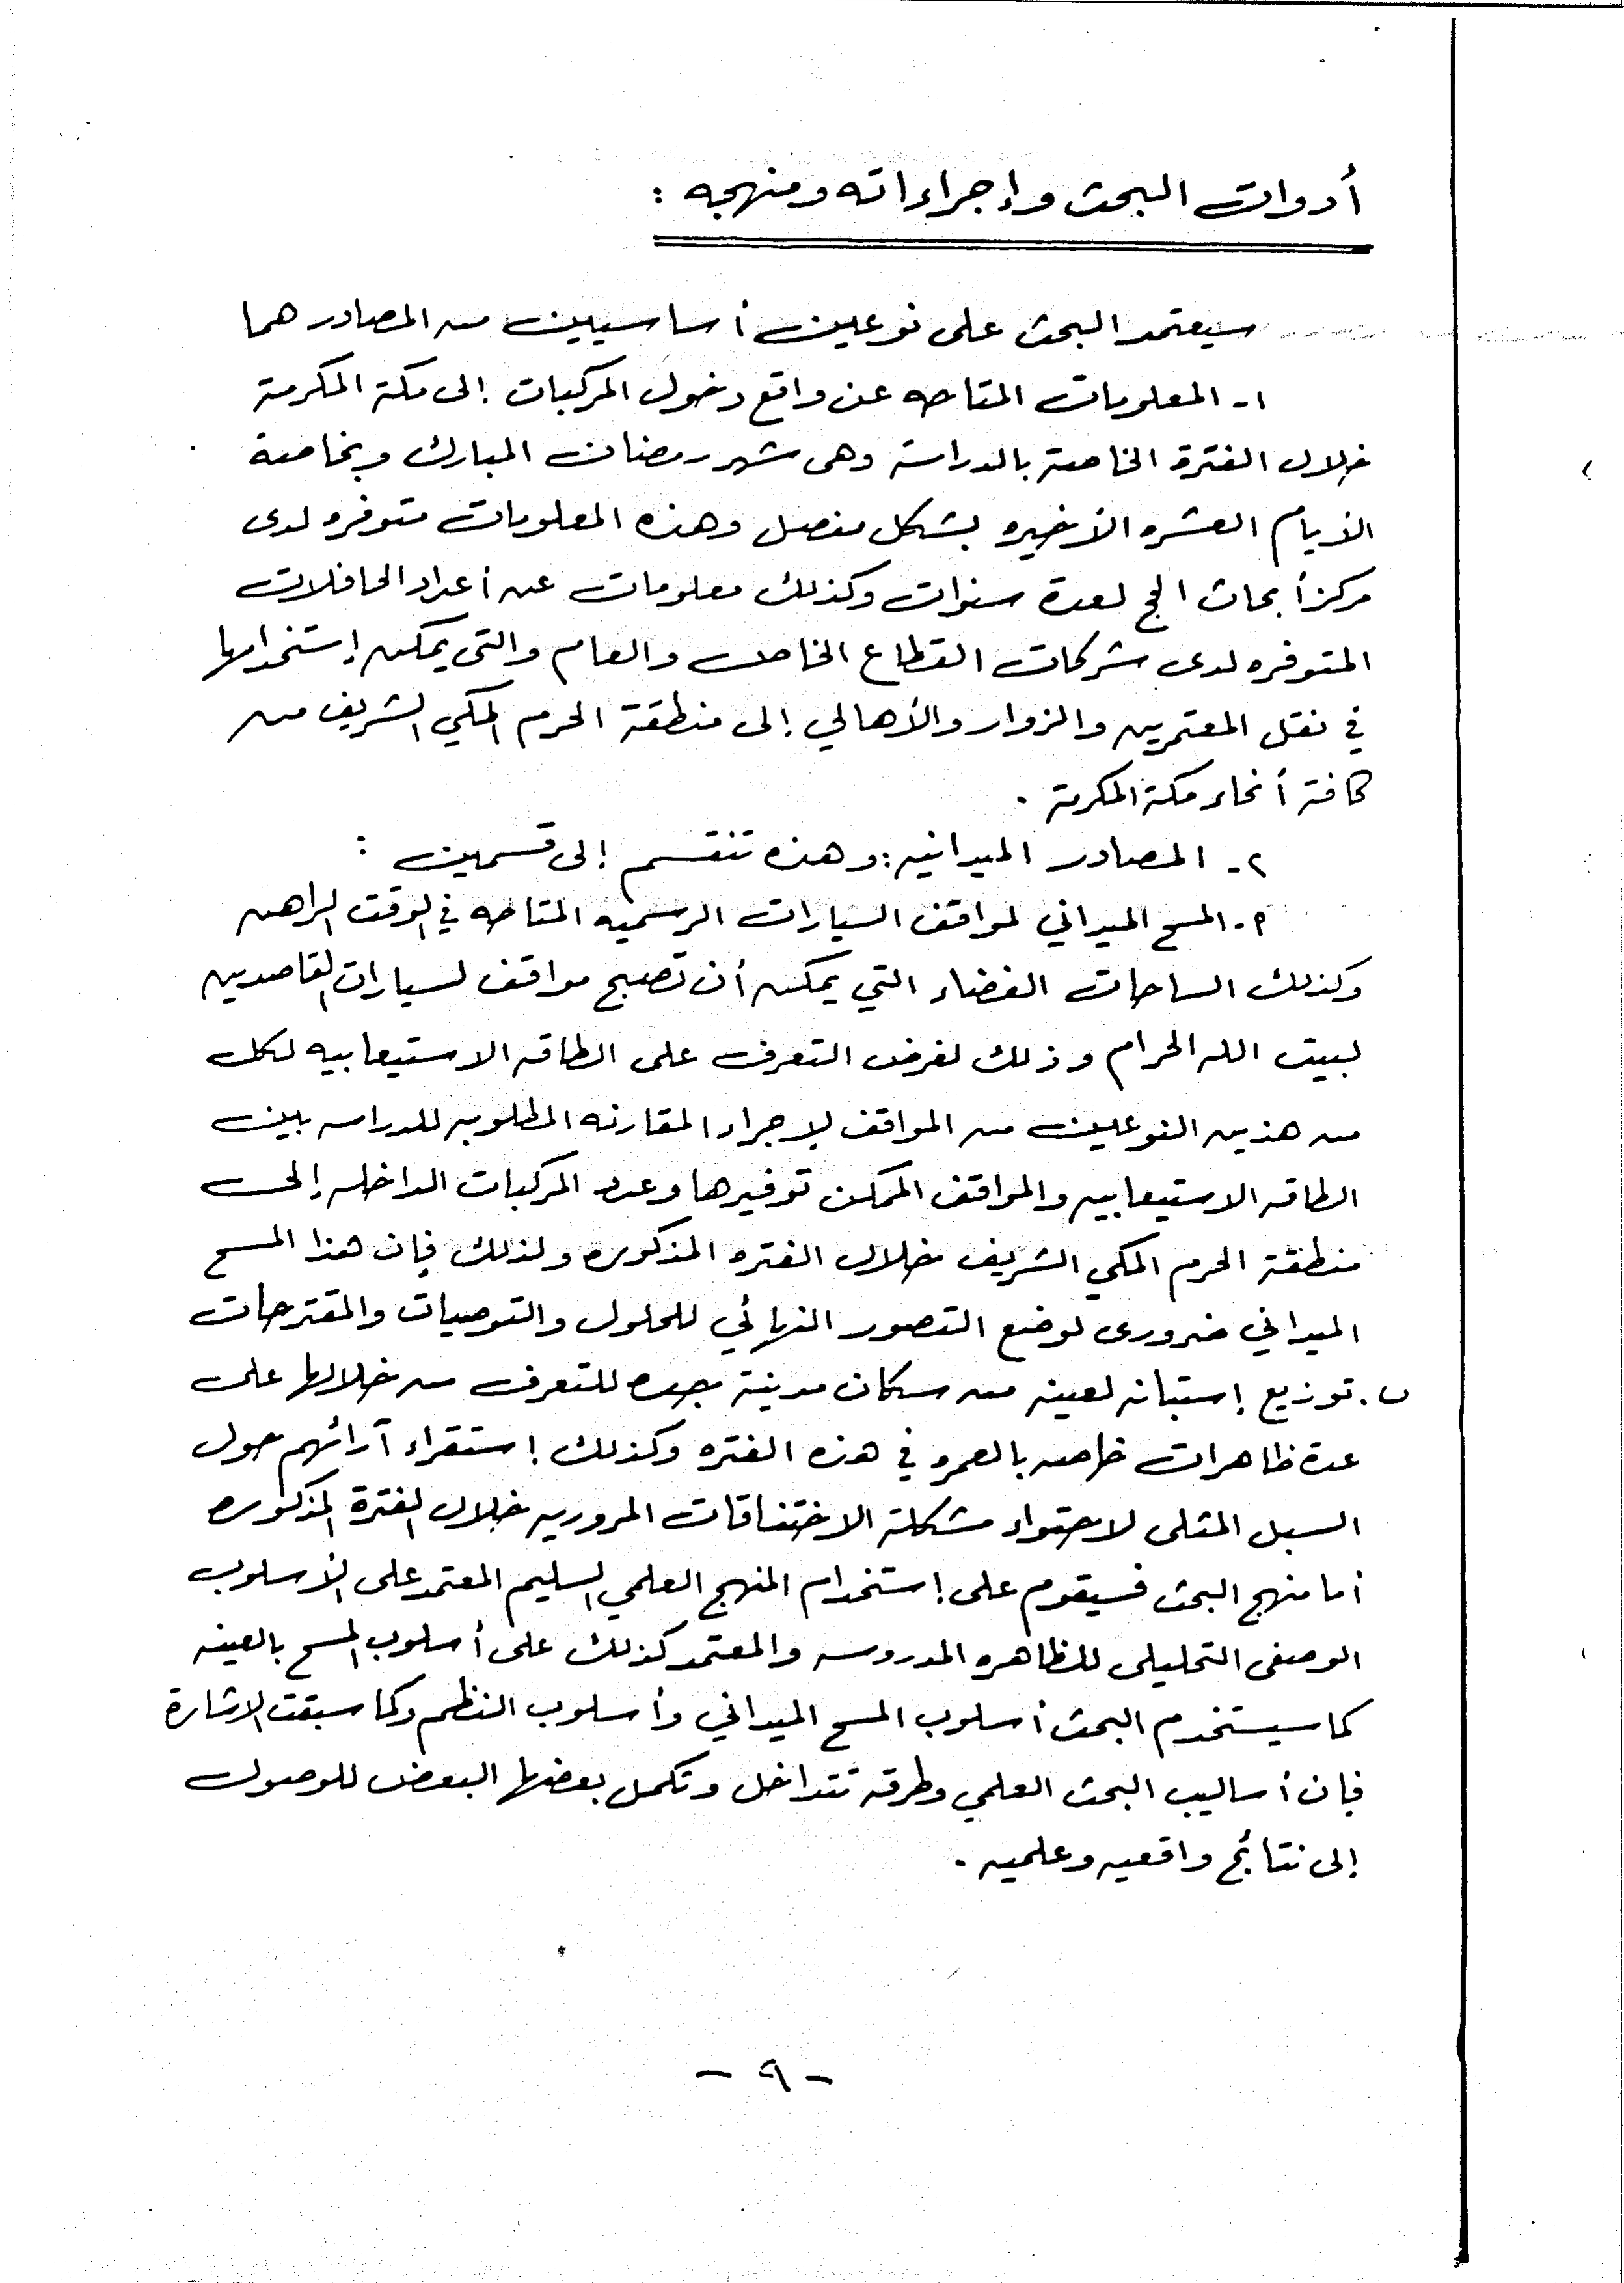 أدوات البحث وإجراءاته ومنهجه :
سيعتمد البحث على نوعين أساسيين من المصادر هما
١- المعلومات المتاحه عن واقع دخول المركبات إلى مكة المكرمة
خلال الفترة الخاصة بالدراسة وهى شهر رمضان المبارك وبخاصة
الأيام العشره الأخيره بشكل مفصل وهذه المعلومات متوفره لدى
مركز أبحاث الحج لعدة سنوات وكذلك معلومات عن أعداد الحافلات
المتوفره لدى شركات القطاع الخاص والعام والتى يمكن إستخدامها
في نقل المعتمرين والزوار والأهالي إلى منطقة الحرم المكي الشريف من
كافة أنحاء مكة المكرمة .
٢- المصادر الميدانيه : وهذه تنقسم إلى قسمين :
٩- المسح الميداني لمواقف السيارات الرسميه المتاحه في الوقت الراهن
وكذلك الساحات الفضاء التي يمكن أن تصبح مواقف لسيارات القاصدين
لبيت الله الحرام وذلك لغرض التعرف على الطاقه الاستيعابيه لكل
من هذين النوعين من المواقف لإجراء المقارنه المطلوبه للدراسه بين
الطاقه الاستيعابيه والمواقف الممكن توفيرها وعدد المركبات الداخله إلى
منطقة الحرم المكي الشريف خلال الفتره المذكوره ولذلك فإن هذا المسح
الميداني ضرورى لوضع التصور النهائي للحلول والتوصيات والمقترحات
ب. توزيع إستبانه لعينه من سكان مدينة جده للتعرف من خلالها على
عدة ظاهرات خاصه بالعمره في هذه الفتره وكذلك إستقراء آرائهم حول
السبل المثلى لاحتواء مشكلة الاختناقات المروريه خلال الفترة المذكوره
أما منهج البحث فسيقوم على إستخدام المنهج العلمي السليم المعتمد على الأسلوب
الوصفى التحليلى للظاهره المدروسه والمعتمد كذلك على أسلوب المسح بالعينه
كما سيستخدم البحث أسلوب المسح الميداني وأسلوب النظم وكما سبقت الاشارة
فإن أساليب البحث العلمي وطرقه تتداخل وتكمل بعضها البعض للوصول
إلى نتائج واقعيه وعلميه .
- ٩ -